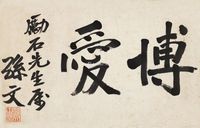 博愛
勵石先生属
孫文